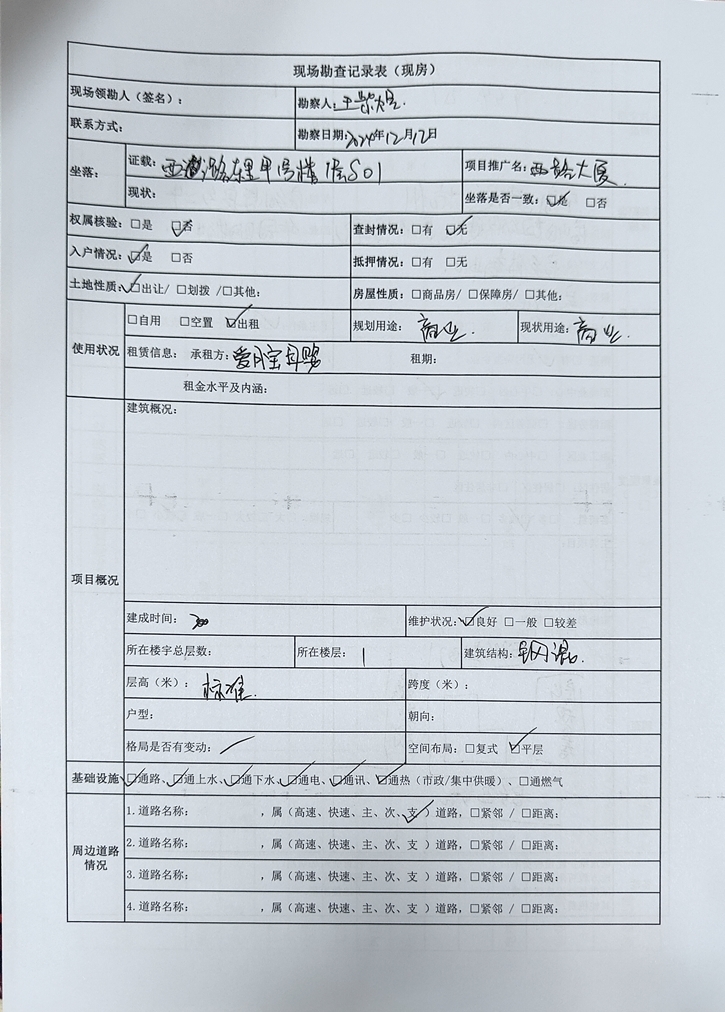 现场勘查记录表（现房）
现场领勘人（签名）： 勘察人：王
联系方式： 勘察日期：2024年12月12日
坐落： 证载：西 路东里甲 号楼1层S01 项目推广名：西 大厦
现状： 坐落是否一致：☑是 □否
权属核验：□是 ☑否 查封情况：□有 ☑无
入户情况：☑是 □否 抵押情况：□有 □无
土地性质：☑出让/ □划拨 /□其他： 房屋性质：□商品房/ □保障房/ □其他：
使用状况 □自用 □空置 ☑出租 规划用途：商业 现状用途：商业
租赁信息： 承租方：爱 宝 租期：
租金水平及内涵：
项目概况 建筑概况：
建成时间： 维护状况：☑良好 □一般 □较差
所在楼宇总层数： 所在楼层：1 建筑结构：钢混
层高（米）：标准 跨度（米）：
户型： 朝向：
格局是否有变动：／ 空间布局：□复式 ☑平层
基础设施 ☑通路、☑通上水、☑通下水、☑通电、☑通讯、☑通热（市政/集中供暖）、□通燃气
周边道路情况 1.道路名称： ，属（高速、快速、主、次、支✓）道路，□紧邻 / □距离：
2.道路名称： ，属（高速、快速、主、次、支 ）道路，□紧邻 / □距离：
3.道路名称： ，属（高速、快速、主、次、支 ）道路，□紧邻 / □距离：
4.道路名称： ，属（高速、快速、主、次、支 ）道路，□紧邻 / □距离：